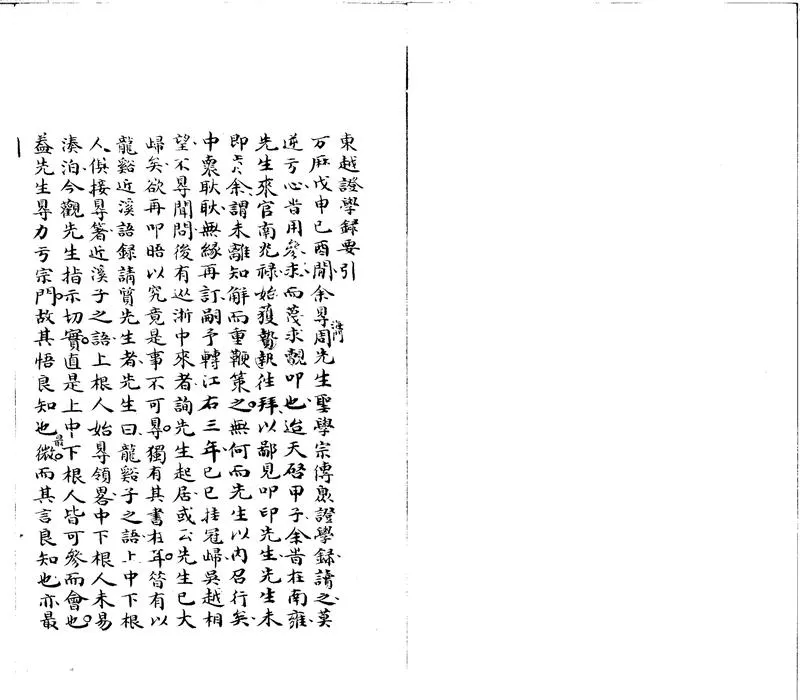 東越證學錄要引
万厤戊申己酉間余㝵海門周先生聖學宗傳與證學錄讀之莫
逆亏心昔用參求而蔑求覿叩也迨天啓甲子余昔在南雍
先生來官南兆祿始獲贄執徃拜以鄙見叩印先生先生未
即肯余謂未離知解而重鞭策之無何而先生以內召行矣
中裏耿耿無緣再訂嗣予轉江右三年己巳挂冠歸吳越相
望不㝵聞問後有從浙中來者詢先生起居或云先生已大
歸矣欲再叩晤以究竟是事不可㝵獨有其書在耳昝有以
龍谿近溪語錄請質先生者先生曰龍谿子之語上中下根
人俱接㝵著近溪子之語上根人始㝵領畧中下根人未易
湊泊今觀先生指示切實直是上中下根人皆可參而會也
葢先生㝵力亏宗門故其悟良知也最微而其言良知也亦最